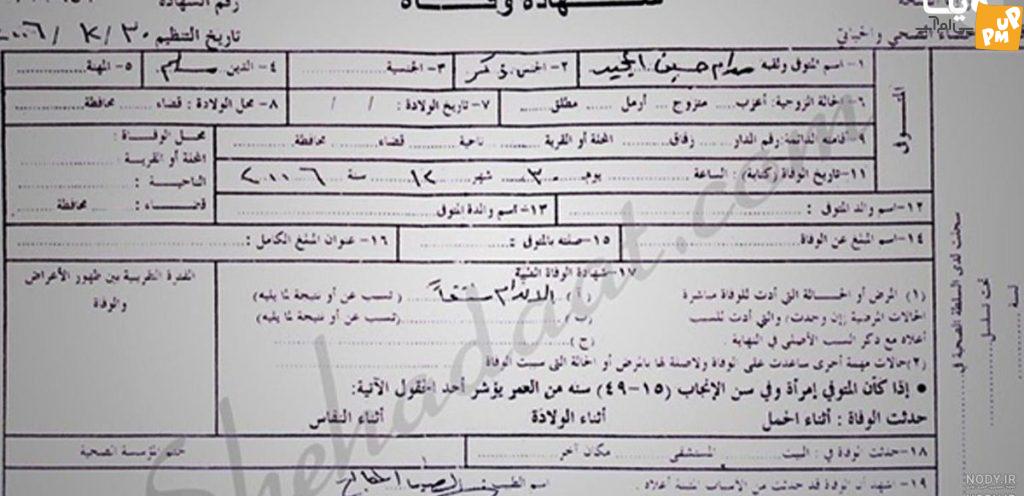 شهادة وفاة
رقم الشهادة
تاريخ التنظيم ٣٠ / /٢٠٠٦
١- اسم المتوفى ولقبه صدام حسين المجيد
٢- الجنس ذكر
٣- الجنسية:
٤- الدين مسلم
٥- المهنة:
المتوفى
٦- الحالة الزوجية: أعزب متزوج أرمل مطلق
٧- تاريخ الولادة: / /
٨- محل الولادة: قضاء محافظة
٩- رقم الدار زقاق المحلة أو القرية ناحية قضاء محافظة
محل الوفاة:
المحلة أو القرية:
الناحية:
قضاء: محافظة
١١- تاريخ الوفاة (كتابة): الساعة يوم ٣٠ شهر ١٢ سنة ٢٠٠٦
١٢- اسم والد المتوفى:
١٣- اسم والدة المتوفى:
١٤- اسم المبلغ عن الوفاة
١٥- صلته بالمتوفى:
١٦- عنوان المبلغ الكامل:
١٧- شهادة الوفاة الطبية
الفترة التقريبية بين ظهور الأعراض والوفاة
(١) المرض أو الحالة التي أدت للوفاة مباشرة (أ) الاعدام شنقاً (تسبب عن أو نتيجة لما يليه)
الحالات المرضية (إن وجدت) والتي أدت للسبب (ب) (تسبب عن أو نتيجة لما يليه)
أعلاه مع ذكر السبب الأصلي في النهاية. (ج)
(٢) حالات مهمة أخرى ساعدت على الوفاة ولاصلة لها بالمرض أو الحالة التي سببت الوفاة
• إذا كان المتوفي إمرأة وفي سن الإنجاب (١٥-٤٩) سنه من العمر يؤشر أحد الحقول الآتية:
حدثت الوفاة: أثناء الحمل أثناء الولادة أثناء النفاس
١٨- حدثت الوفاة في: البيت المستشفى مكان آخر
ختم المؤسسة الصحية
١٩- أشهد أن الوفاة قد حدثت من الأسباب المبينة أعلاه. اسم الطبيب
سجلت لدى السلطة الصحية في
تحت تسلسل
لسنة
Shehadaat.com
UP
PM
NODY.IR